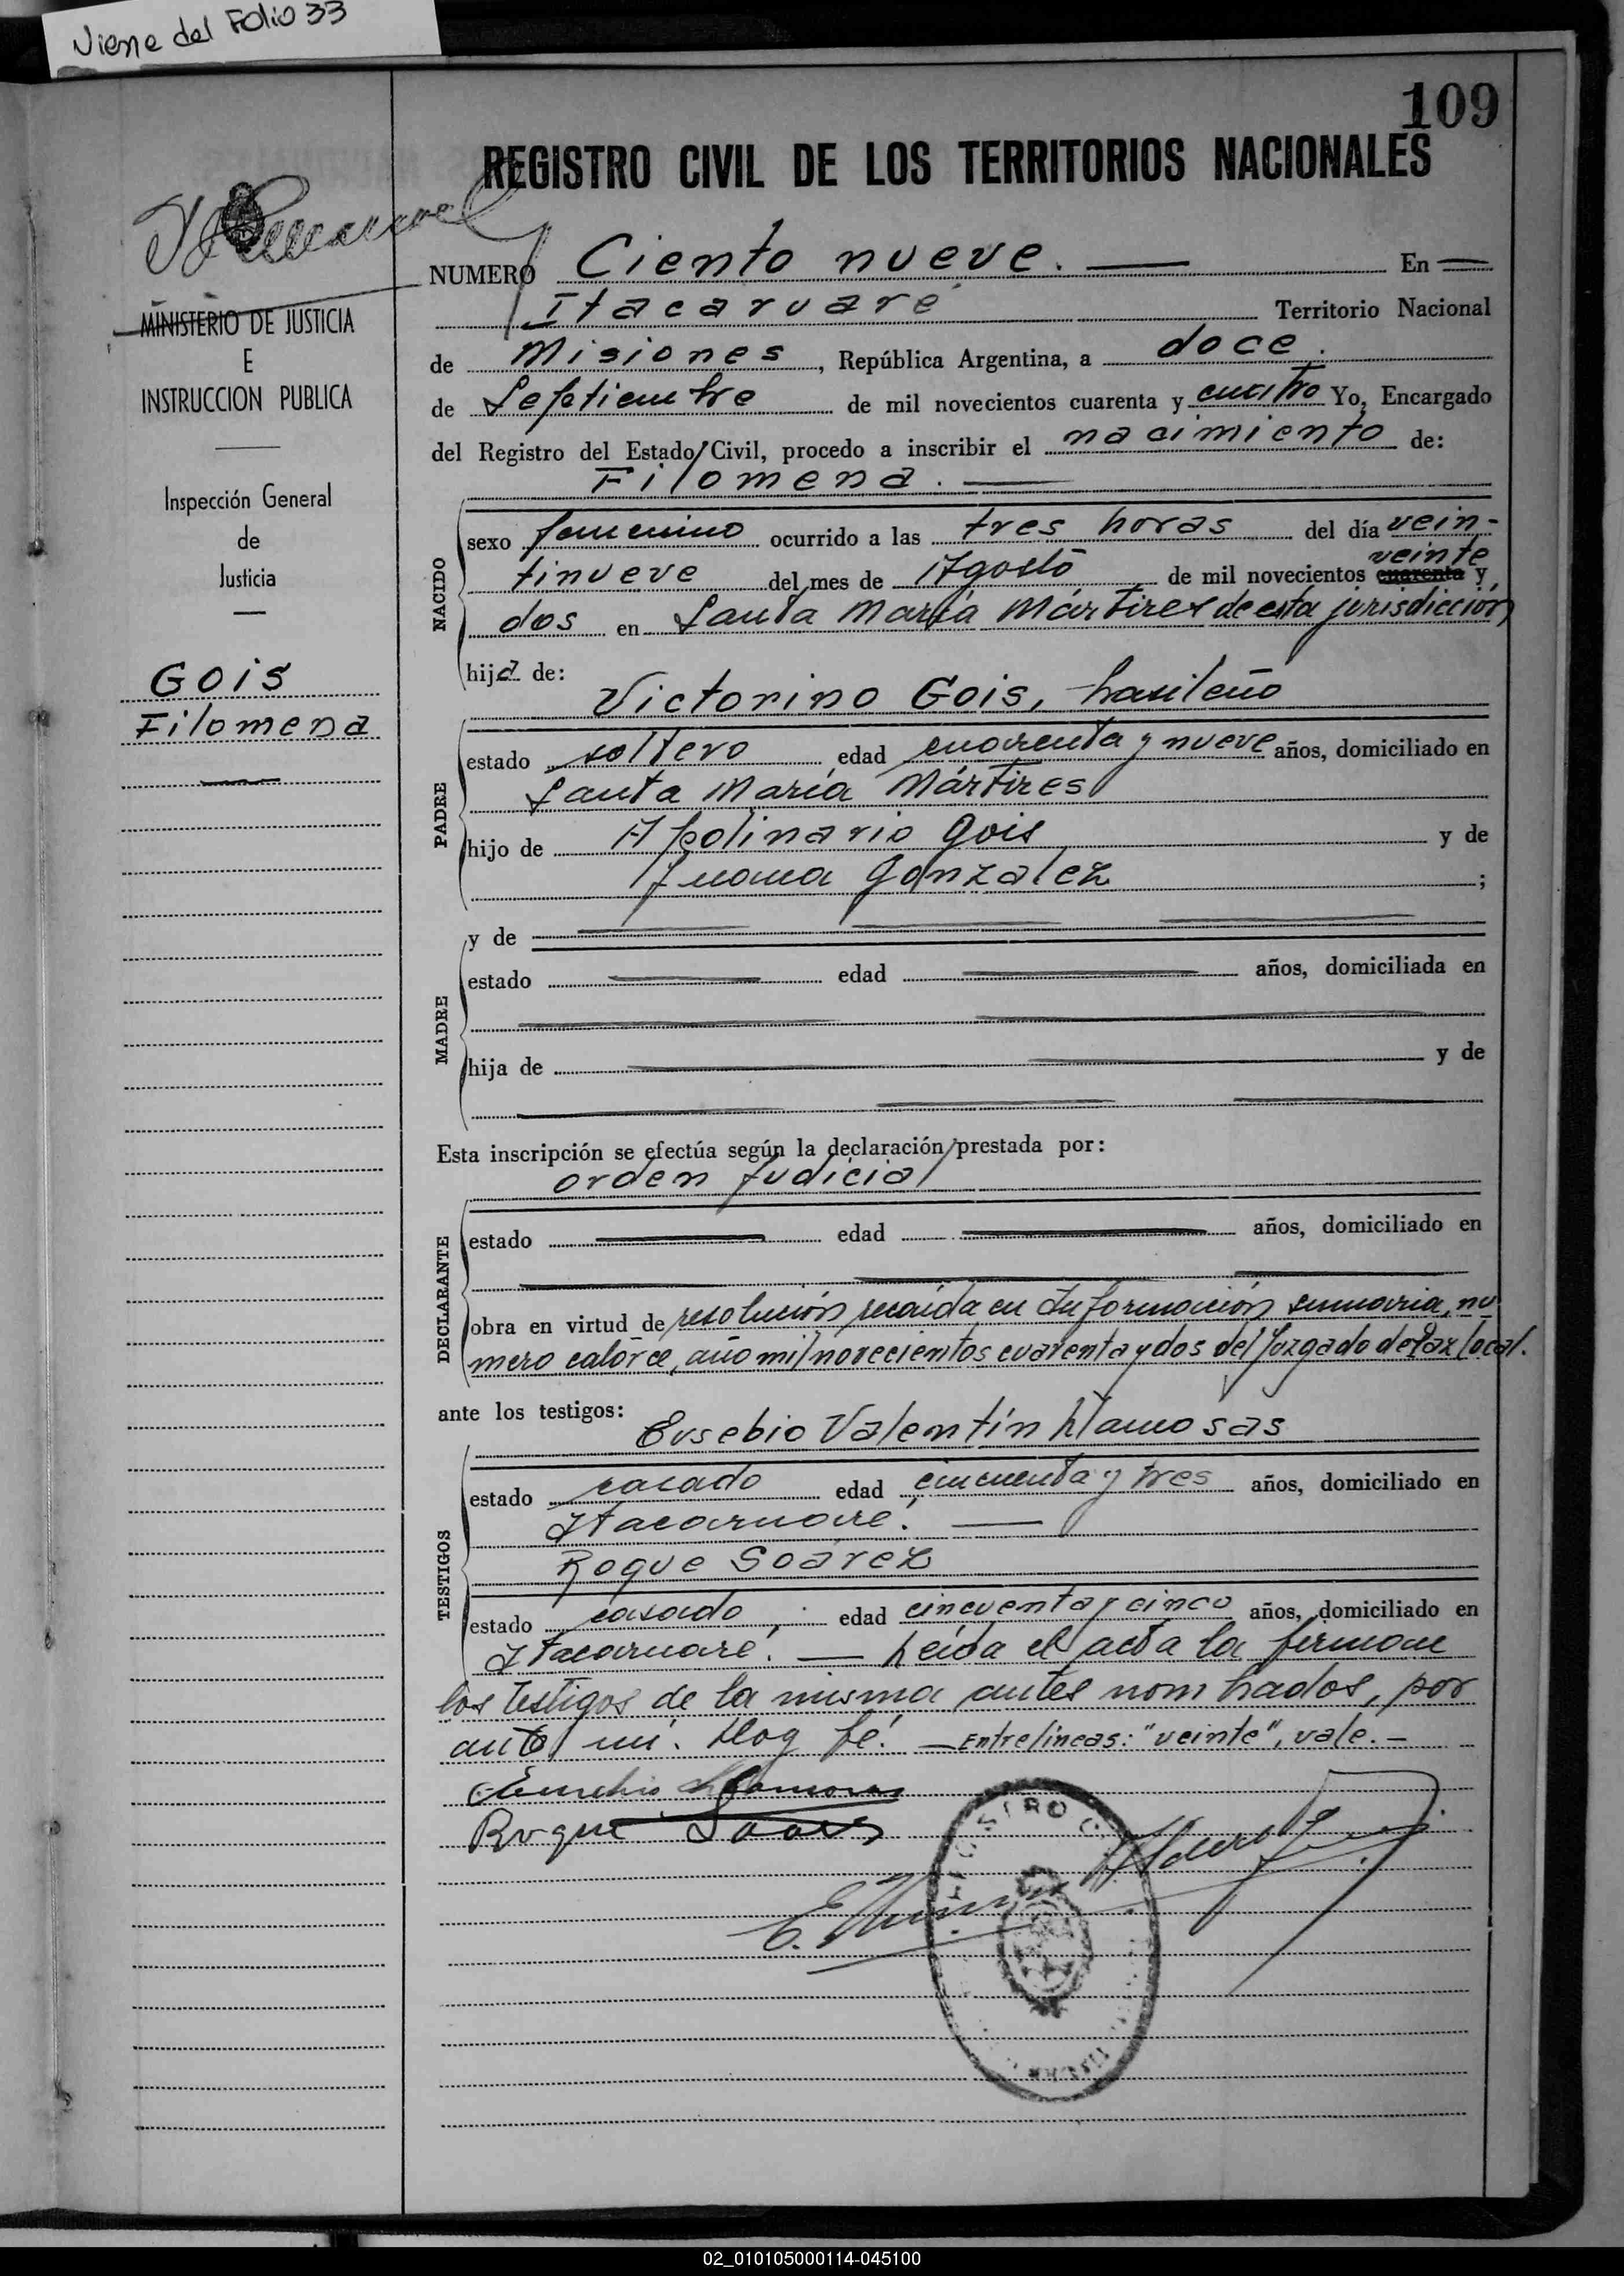 Viene del Folio 33
109
REGISTRO CIVIL DE LOS TERRITORIOS NACIONALES
MINISTERIO DE JUSTICIA
E
INSTRUCCION PUBLICA
Inspección General
de
Justicia
Gois
Filomena
NUMERO Ciento nueve. En
Itacaruaré Territorio Nacional
de Misiones, República Argentina, a doce.
de Septiembre de mil novecientos cuarenta y cuatro Yo, Encargado
del Registro del Estado Civil, procedo a inscribir el nacimiento de:
Filomena.
NACIDO
sexo femenino ocurrido a las tres horas del día vein-
veinte
tinueve del mes de Agosto de mil novecientos cuarenta y
dos en Santa María Mártires de esta jurisdicción
hija de:
Victorino Gois, brasileño
PADRE
estado soltero edad cuarenta y nueve años, domiciliado en
Santa María Mártires
hijo de Apolinario Gois y de
Juana Gonzalez ;
MADRE
y de
estado edad años, domiciliada en
hija de y de
Esta inscripción se efectúa según la declaración prestada por:
orden Judicial
DECLARANTE
estado edad años, domiciliado en
obra en virtud de resolución recaída en Información sumaria, nú
mero catorce, año mil novecientos cuarenta y dos del Juzgado de Paz local.
ante los testigos:
Eusebio Valentín Llamosas
TESTIGOS
estado casado edad cincuenta y tres años, domiciliado en
Itacaruaré.
Roque Soarez
estado casado, edad cincuenta y cinco años, domiciliado en
Itacaruaré. — Leída el acta la firman
los testigos de la misma antes nombrados, por
ante mí. Doy fé. — Entrelíneas: "veinte", vale. —
Eusebio Llamosas
Roque Soares
REGISTRO C
02_010105000114-045100